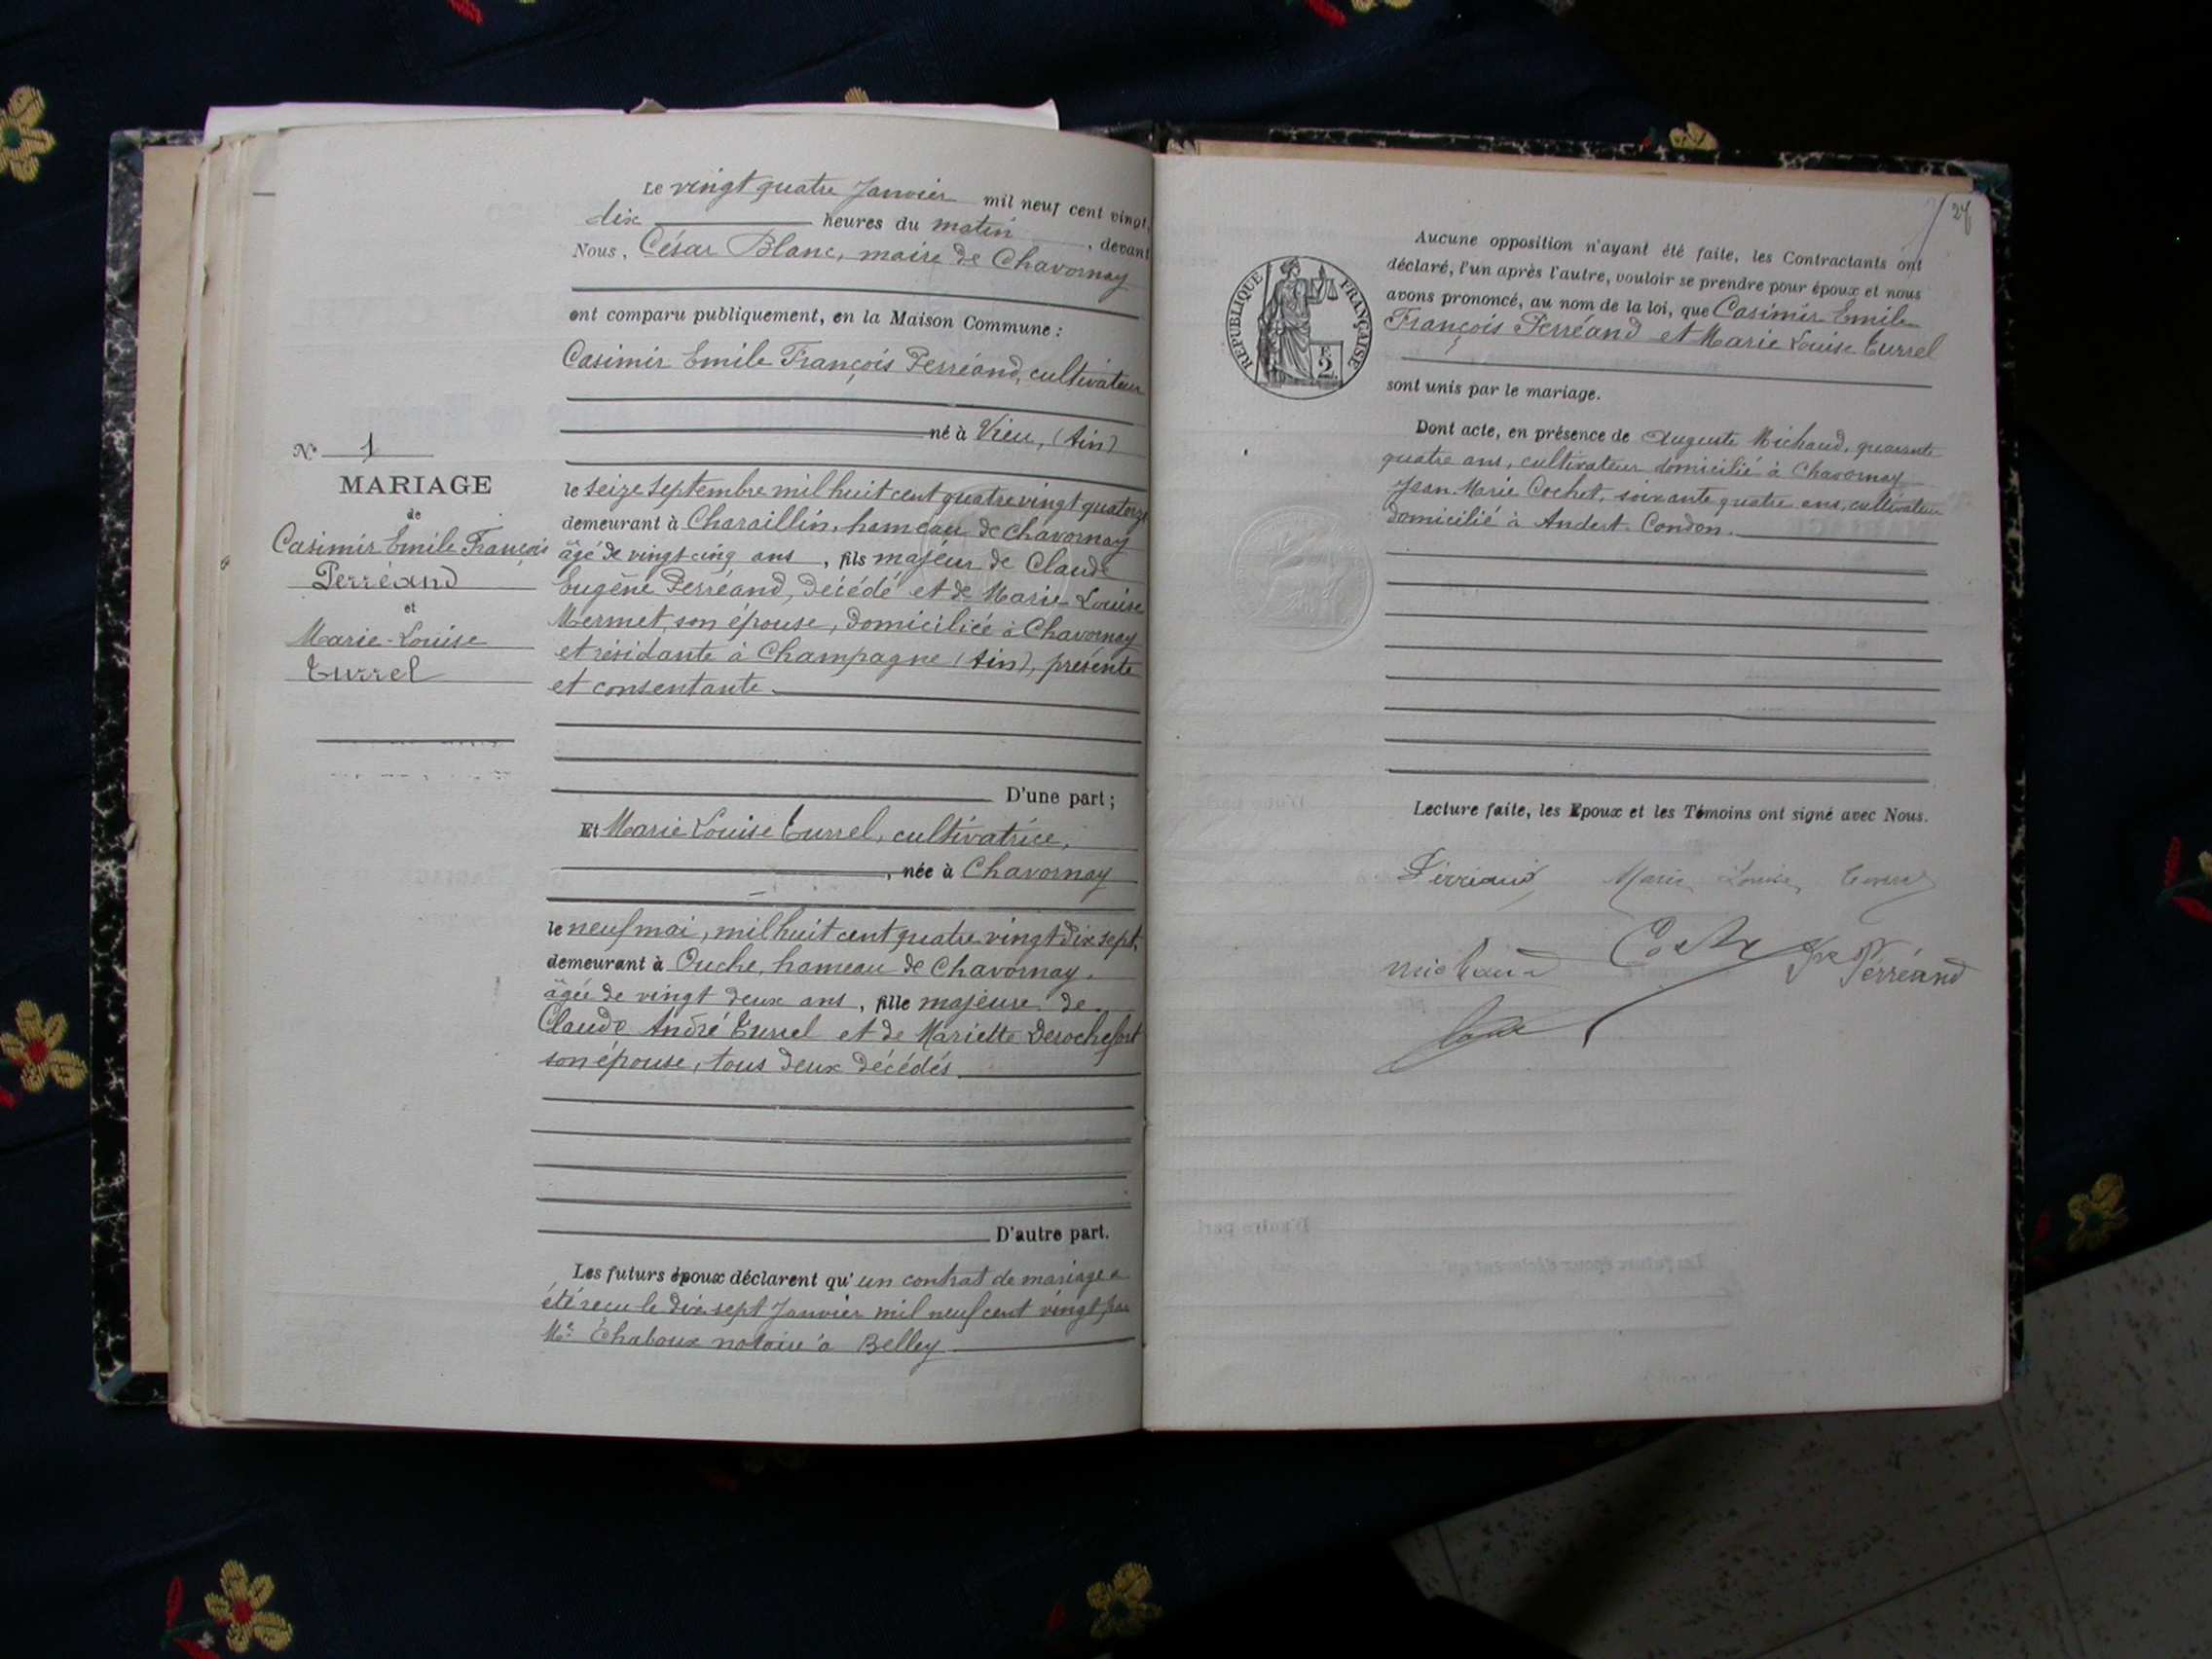 Le vingt quatre Janvier mil neuf cent vingt,
dix heures du matin, devant
Nous, César Blanc, maire de Chavornay
ont comparu publiquement, en la Maison Commune :
Casimir Emile François Perréand, cultivateur
né à Vieu, (Ain)
le seize septembre mil huit cent quatre vingt quatorze
demeurant à Charaillin, hameau de Chavornay
âgé de vingt cinq ans, fils majeur de Claude
Eugène Perréand, décédé et de Marie-Louise
Mermet, son épouse, domiciliée à Chavornay
et résidante à Champagne (Ain), présente
et consentante.
D'une part ;
Et Marie Louise Turrel, cultivatrice,
, née à Chavornay
le neuf mai, mil huit cent quatre vingt dix sept,
demeurant à Ouche, hameau de Chavornay.
âgée de vingt deux ans, fille majeure de
Claude André Turrel et de Mariette Derochefort
son épouse, tous deux décédés.
D'autre part.
Les futurs époux déclarent qu'un contrat de mariage a
été reçu le dix sept Janvier mil neuf cent vingt par
Me Chaboux notaire à Belley
N° 1
MARIAGE
de
Casimir Emile François
Perréand
et
Marie-Louise
Turrel
27
RÉPUBLIQUE FRANÇAISE
2
Aucune opposition n'ayant été faite, les Contractants ont
déclaré, l'un après l'autre, vouloir se prendre pour époux et nous
avons prononcé, au nom de la loi, que Casimir Emile
François Perréand et Marie Louise Turrel
sont unis par le mariage.
Dont acte, en présence de Auguste Michaud, quarante
quatre ans, cultivateur domicilié à Chavornay
Jean-Marie Cochet, soixante quatre ans, cultivateur
domicilié à Andert-Condon.
Lecture faite, les Epoux et les Témoins ont signé avec Nous.
Perréand Marie Louise Turrel
Michaud Perréand